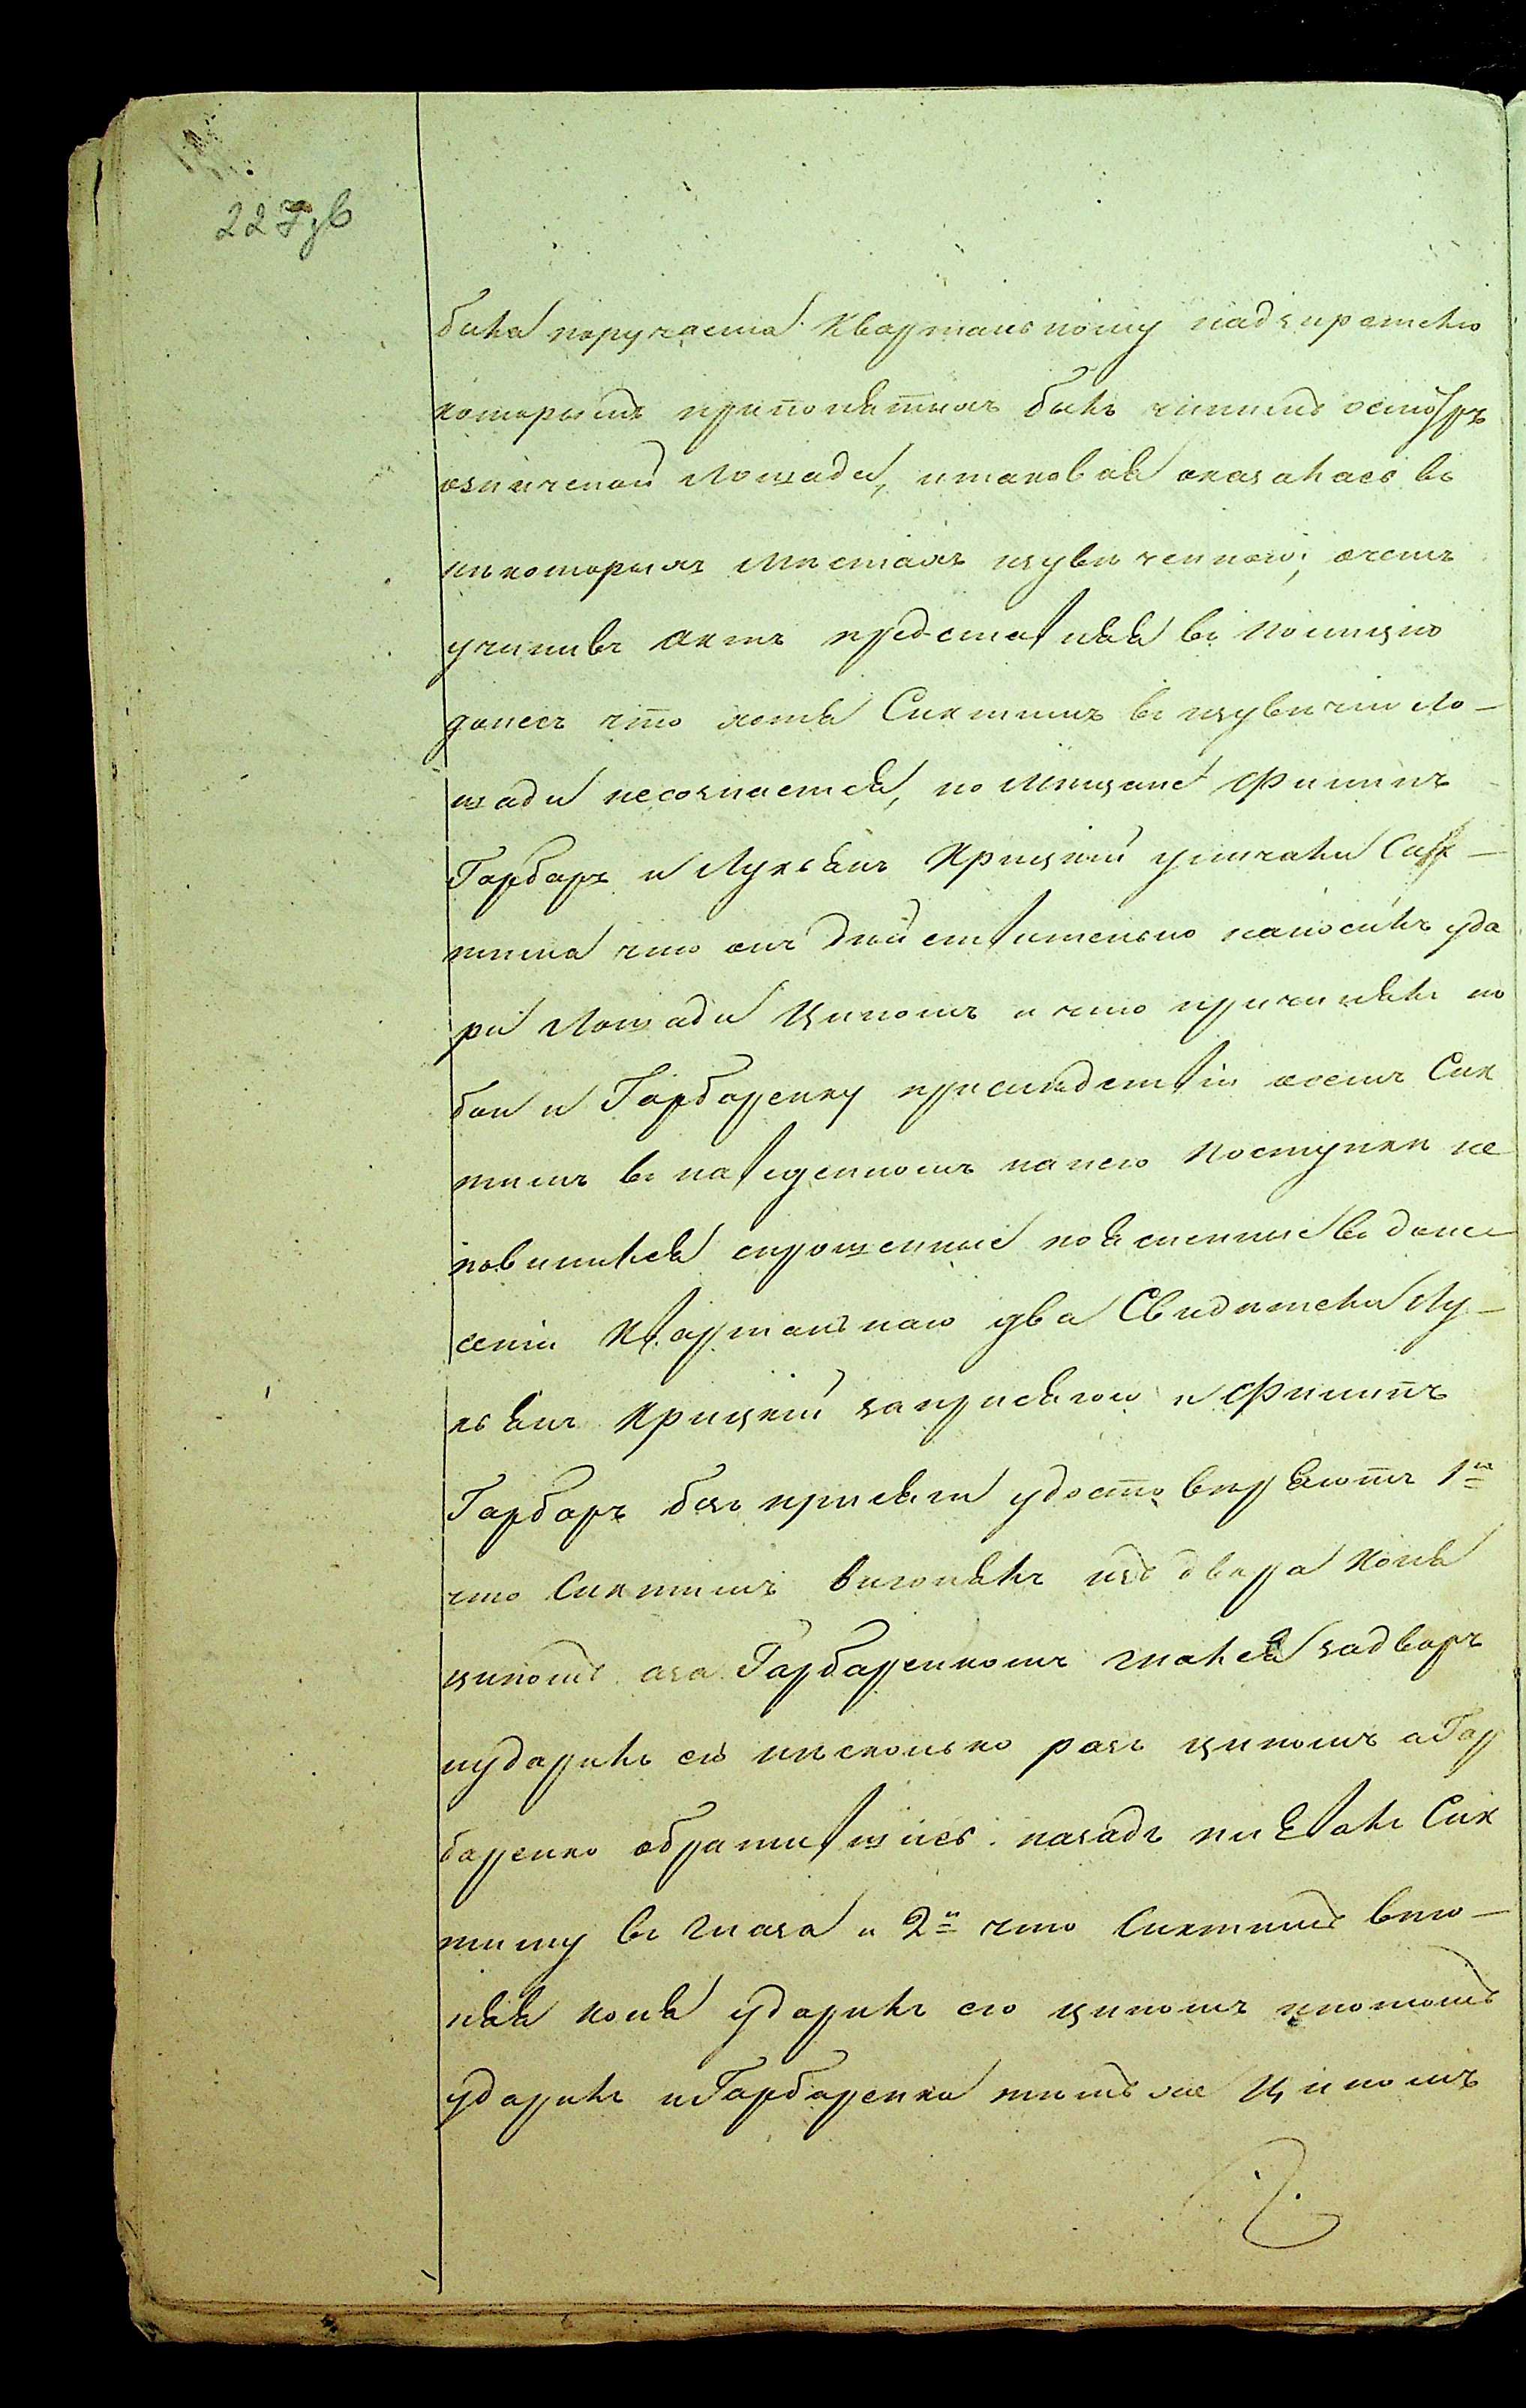 22 Зув
была поручаема Квартальному надзирателю
которымъ припонятыхъ былъ чинимъ осмотръ
означеной Лошади, итаковая оказалась въ
некоторыхъ местахъ изувеченною; очемъ
учинивъ актъ представляя въ Полицию
донесъ что хотя Сиктимъ въ изувечіи Ло-
шади несознается, но Мещане Филипъ
Гарбаръ и Лукьянъ Крицкій уличали Сик-
тима что онъ действительно наносилъ уда
ри Лошади Ципомъ и что причинялъ по
бои и Гарбаренку присиледствіи осемъ Сик
тимъ въ наведенномъ нанего поступки не
повинился спрошенные пояснение въ доне
сеніи Квартальнаго два Свидетели Лу-
кьянъ Крицкий заприсягою и Филипъ
Гарбаръ безъ присяги удостоверяютъ 1й
что Сиктимъ выгонялъ изъ двора Коня
ципомъ аза Гарбаренкомъ гнался задворъ
иударилъ его несколько разъ ципомъ аГар
баренко обратившись назадъ плевалъ Сик
тиму въ глаза и 2й что Сиктимъ выго-
няя коня ударилъ его ципомъ ипотомъ
ударилъ иГарбаренка темъ же Ципомъ